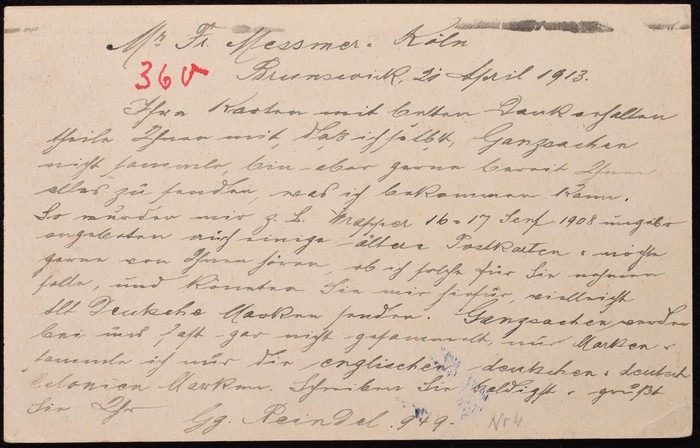 Mr Fr. Messmer. Köln
36
Brunswick, 21 April 1913.
Ihre Karten mit besten Dank erhalten
theile Ihnen mit, daß ich selbst, Ganzsachen
nicht sammle, bin aber gerne bereit Ihnen
alles zu senden, was ich bekommen kann.
So wurden mir z. B. 16 - 17 1908
angeboten auch einige ältere Postkarten. möchte
gerne von Ihnen hören, ob ich solche für Sie nehmen
solle, und könnten Sie mir hiefür, vielleicht
Alt Deutsche Marken senden. Ganzsachen werden
bei uns fast gar nicht gesammelt, nur Marken.
sammle ich nur die englischen, deutschen & deutsch
Colonien Marken. Schreiben Sie baldigst & grüßt
Sie Ihr Gg. Reindel. 949. Nr 4